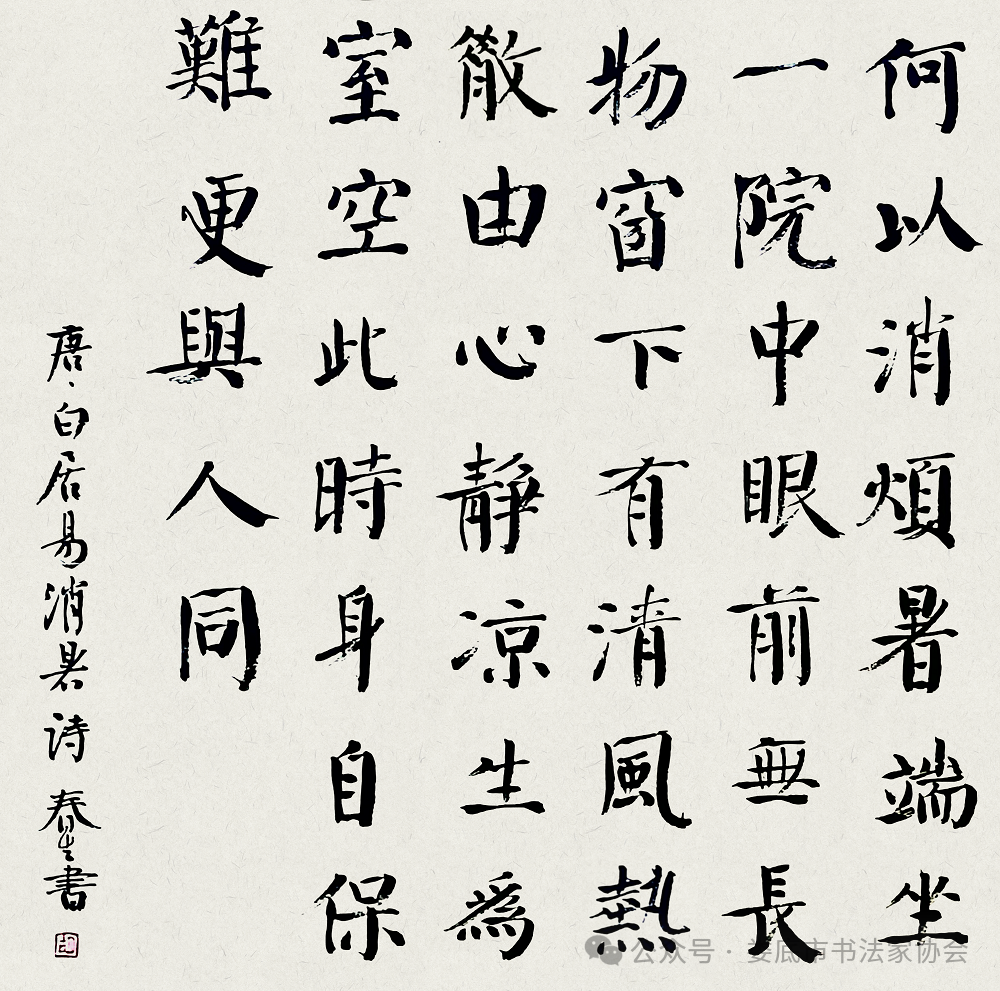 何以消煩暑端坐
一院中眼前無長
物窗下有清風熱
散由心靜凉生為
室空此時身自保
難更與人同
唐、白居易消暑诗 春生書
公众号·娄底市书法家协会